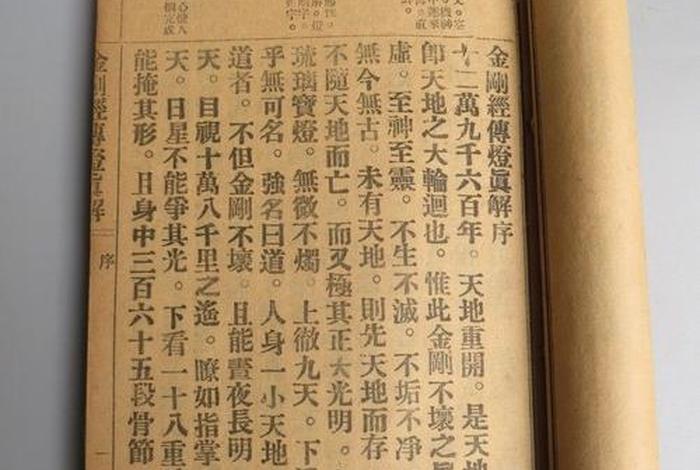 金剛經傳燈眞解序
十二萬九千六百年。天地重開。是天地
卽天地之大輪迴也。惟此金剛不壞之
虛。至神至靈。不生不滅。不垢不凈
無今無古。未有天地。則先天地而存
不隨天地而亡。而又極其正大光明。
琉璃寶燈。無微不燭。上徹九天。下
乎無可名。強名曰道。人身一小天地
道者。不但金剛不壞。且能晝夜長明
天。目視十萬八千里之遙。瞭如指掌
天。日星不能爭其光。下看一十八重
能掩其形。且身中三百六十五段骨節
金剛經傳燈眞解
序
一